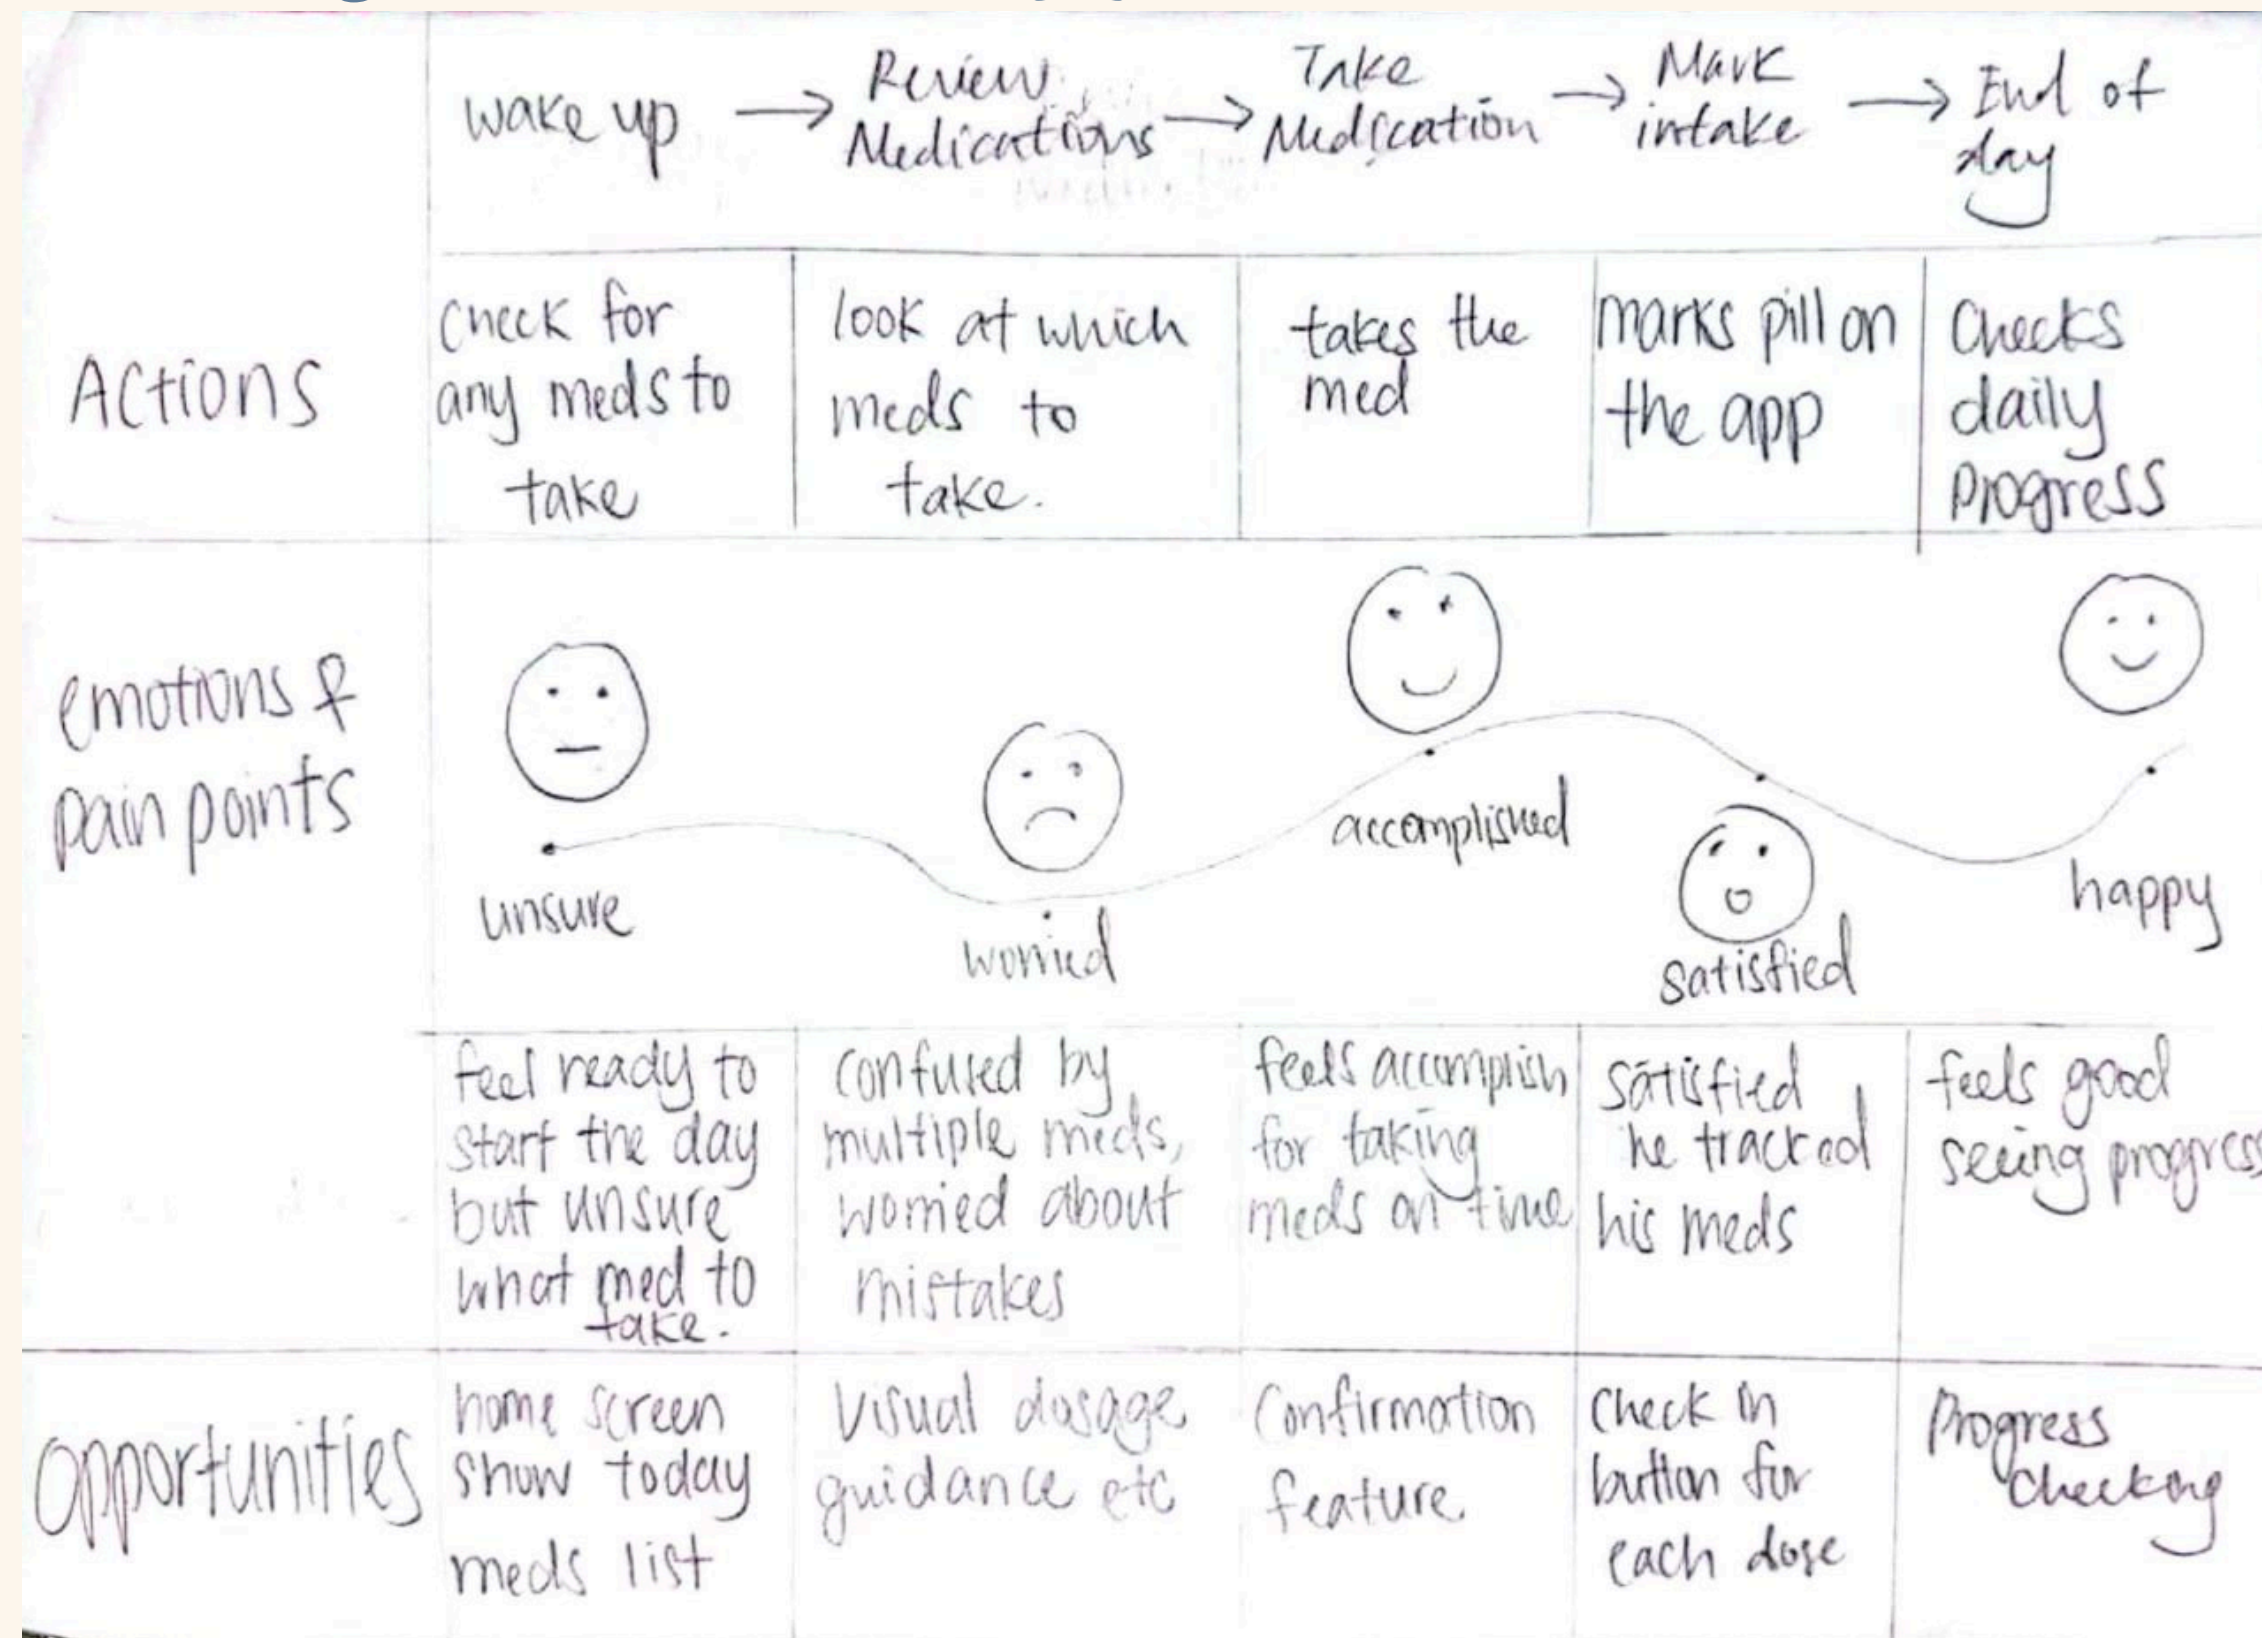 wake up → Review Medications → Take Medication → Mark intake → End of day
Actions
check for
any meds to
take
look at which
meds to
take.
takes the
med
marks pill on
the app
Checks
daily
progress
emotions &
pain points
unsure
worried
accomplished
satisfied
happy
feel ready to
start the day
but unsure
what med to
take.
confused by
multiple meds,
worried about
mistakes
feels accomplish
for taking
meds on time
satisfied
he tracked
his meds
feels good
seeing progress
opportunities
home screen
show today
meds list
Visual dosage
guidance etc
Confirmation
feature
Check in
button for
each dose
Progress
Checking